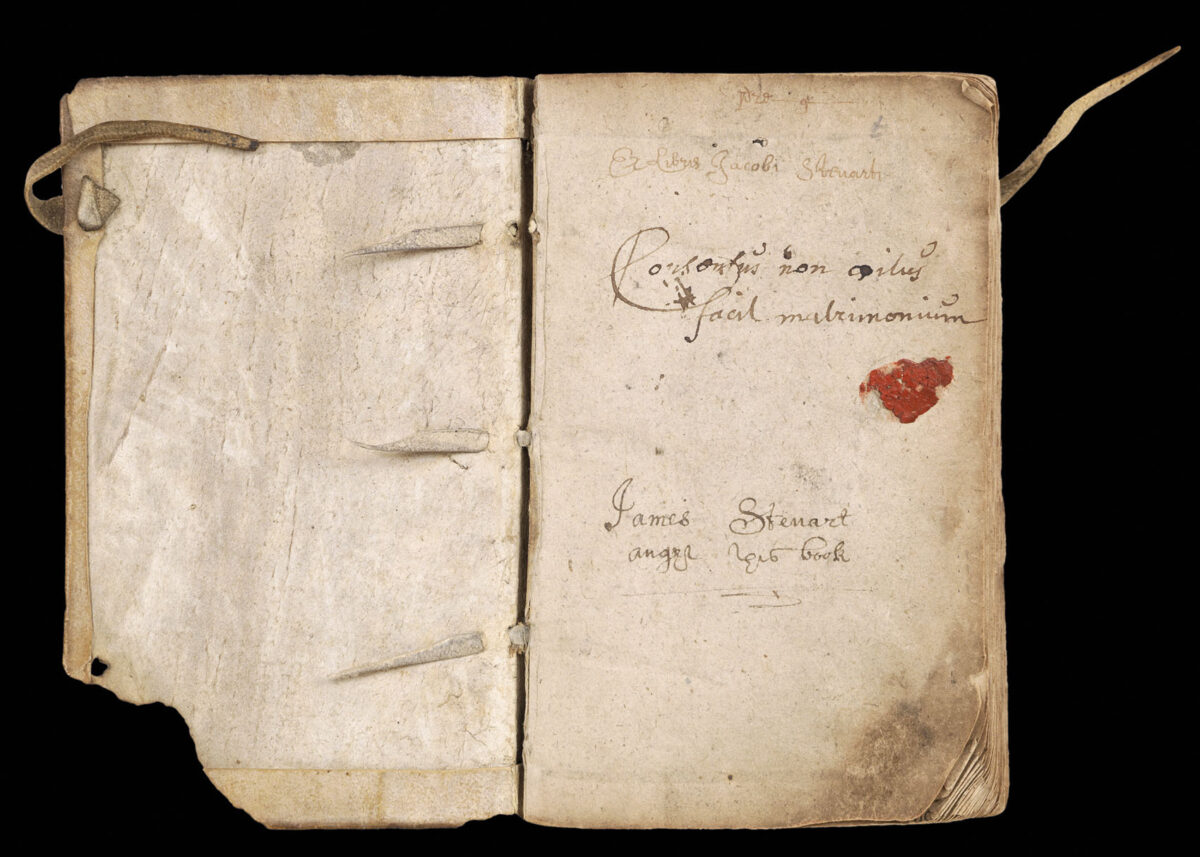 Ex Libris Jacobi Steuarti
Consensus non
facit matrimonium
James Steuart
aught this book